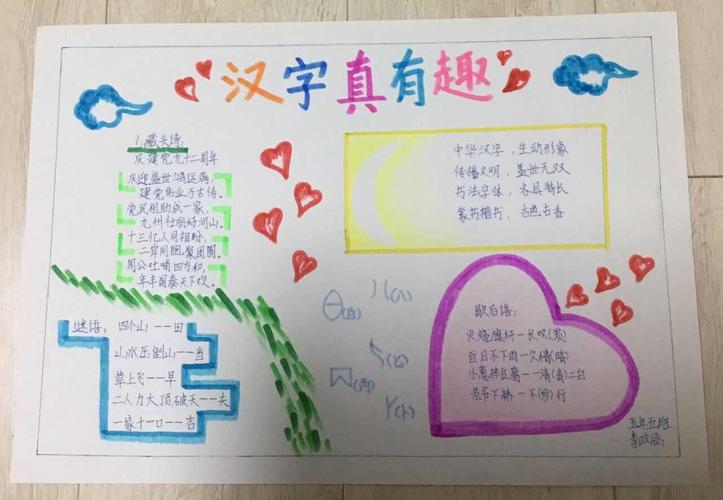 汉字真有趣
1.藏头诗:
庆建党九十二周年
庆迎盛世鸿运病,
建党伟业万古传。
党民相助成一家,
九州壮丽好河山。
十三亿人同相盼,
二岸同胞聚团圆。
周公吐哺四方和,
年丰国泰天下欢。
中华汉字,生动形象
传播文明,盖世无双
书法字体,各具特长
篆书楷书,古色古香
谜语: 四个山——田
山水压倒山——当
草上飞——早
二人力大顶破天——夫
一家十一口——吉
歇后语:
火烧旗杆—长叹(炭)
百日不下雨—久(情)晴
小葱拌豆腐——清(青)二白
老爷下轿—不(步)行
五年五班